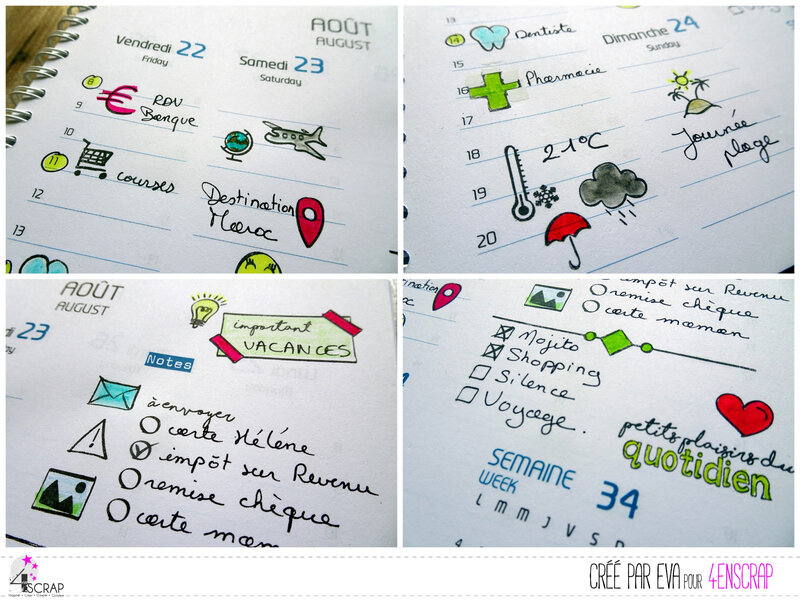 AOÛT
AUGUST
Vendredi 22
Friday
Samedi 23
Saturday
8
9
RDV
Banque
10
11
courses
12
Destination
Maroc
13
13
14
Dentiste
Dimanche 24
Sunday
15
16
Pharmacie
17
18
21°C
Journée
plage
19
20
AOÛT
AUGUST
di 23
important
VACANCES
Notes
à envoyer
carte Hélène
impôt sur Revenu
remise chèque
carte maman
destination
impôt sur Revenu
remise chèque
carte maman
Mojito
Shopping
Silence
Voyage.
petits plaisirs du
quotidien
SEMAINE 34
WEEK
L M M J V S D
4SCRAP
CRÉÉ PAR EVA POUR 4ENSCRAP